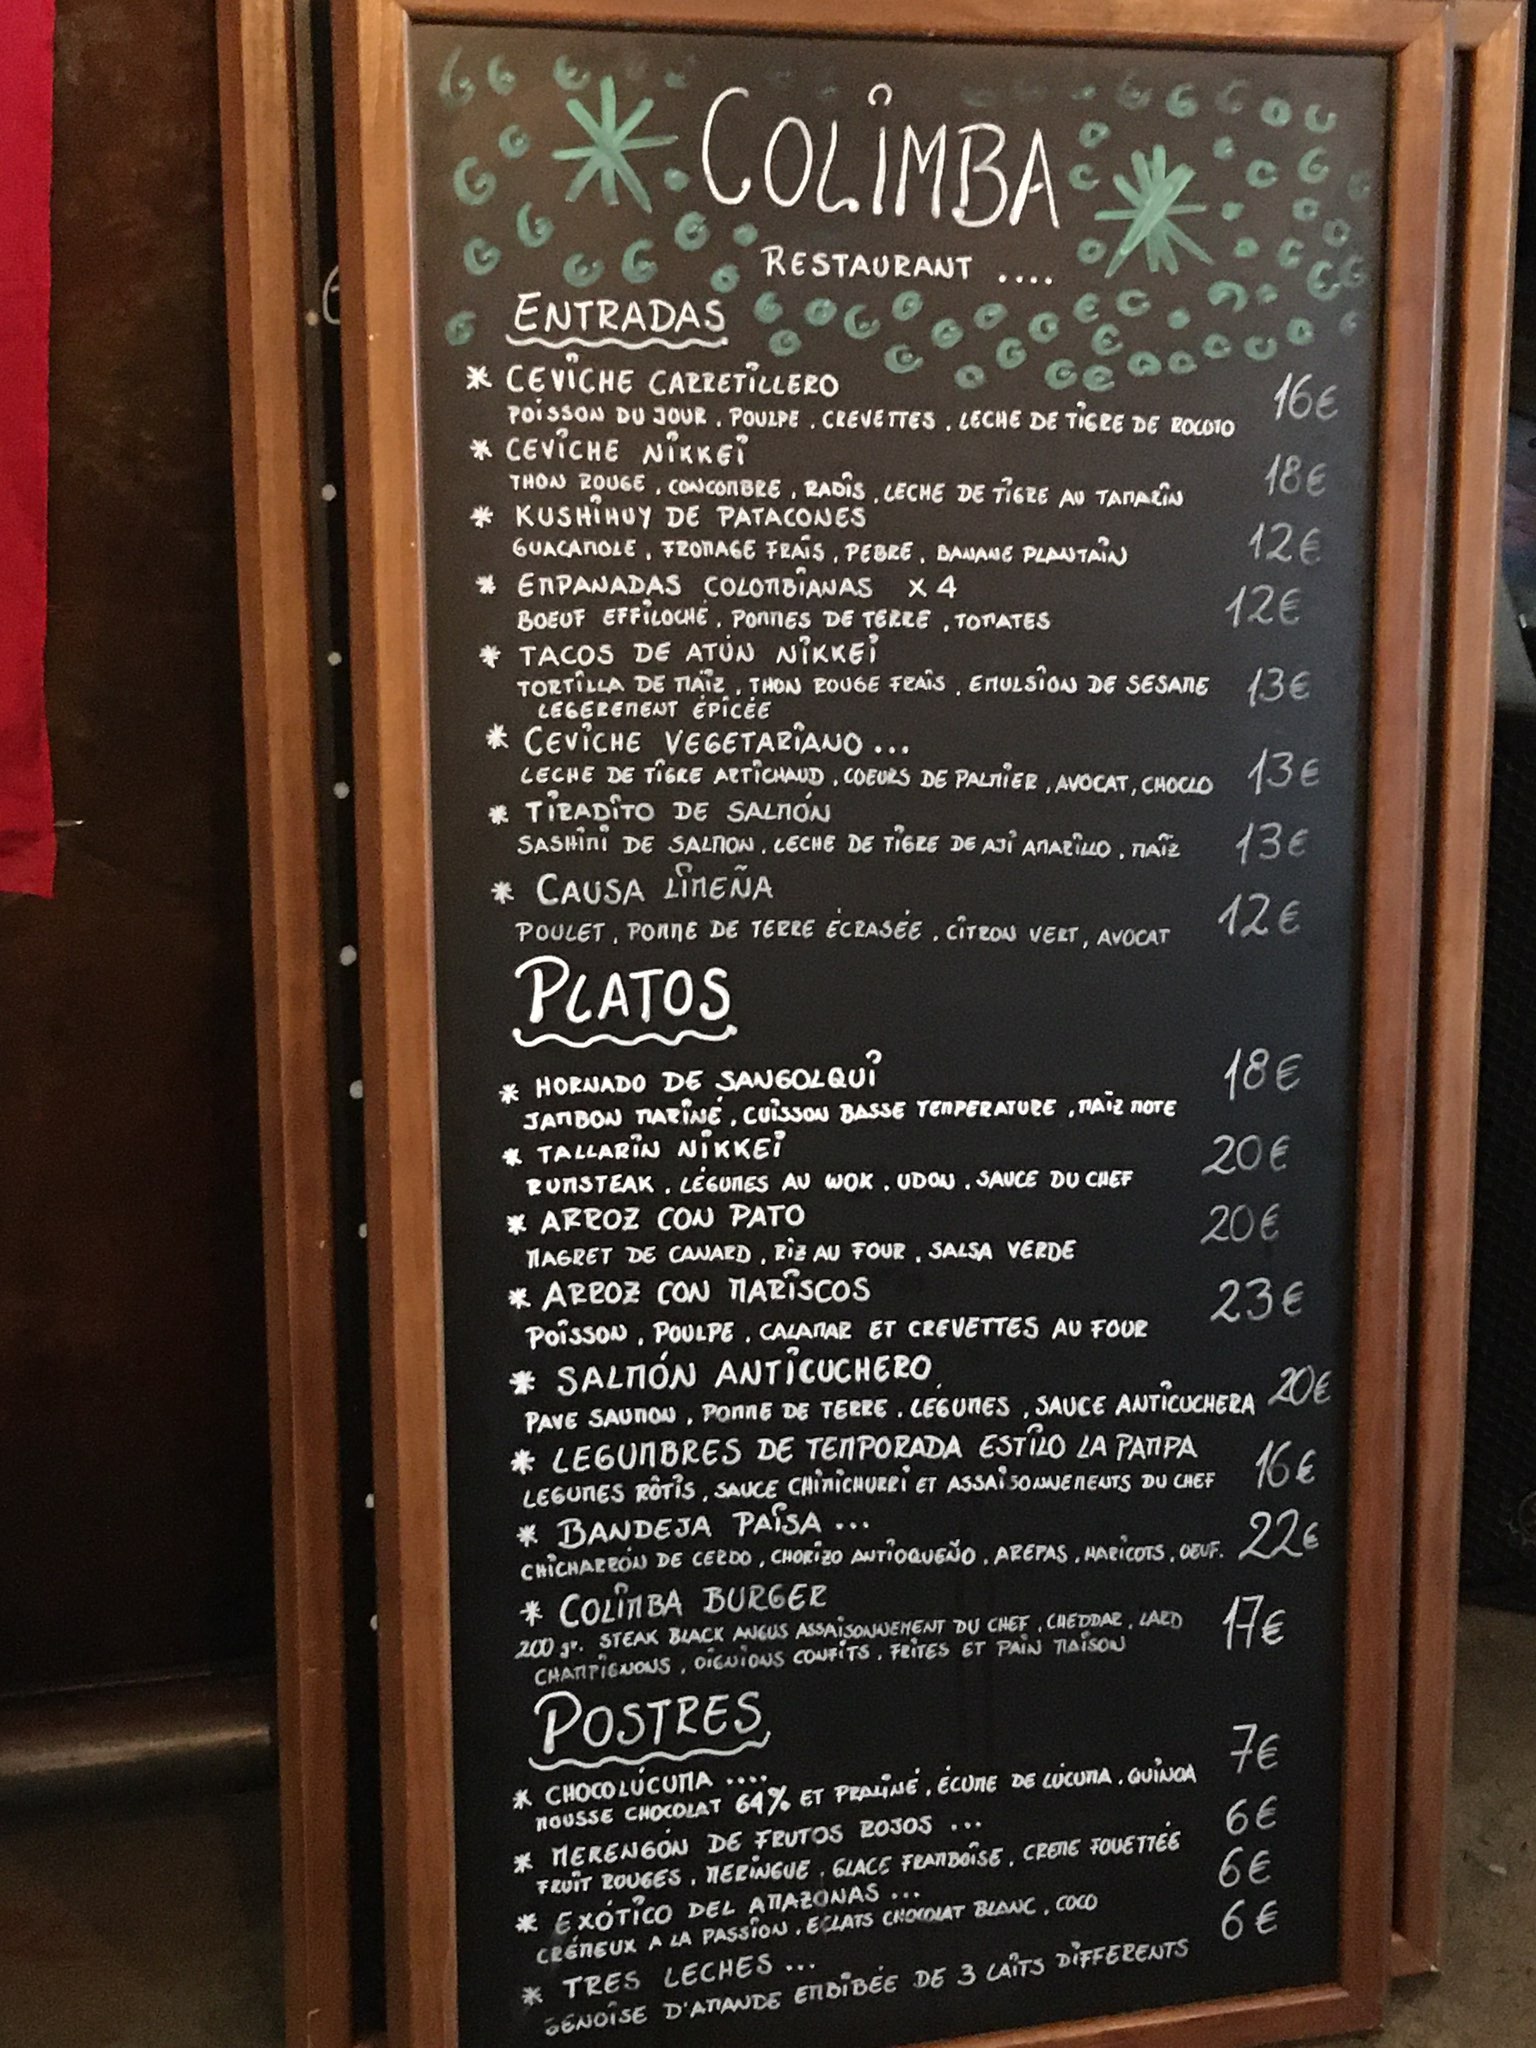 COLIMBA
RESTAURANT ....
ENTRADAS
* CEVICHE CARRETILLERO 16€
POISSON DU JOUR . POULPE . CREVETTES . LECHE DE TIGRE DE ROCOTO
* CEVICHE NIKKEI 18€
THON ROUGE , CONCOMBRE , RADIS , LECHE DE TIGRE AU TAMARIN
* KUSHIHUY DE PATACONES 12€
GUACAMOLE , FROMAGE FRAIS , PEBRE , BANANE PLANTAIN
* EMPANADAS COLOMBIANAS X 4 12€
BOEUF EFFILOCHÉ , POMMES DE TERRE , TOMATES
* TACOS DE ATÚN NIKKEI 13€
TORTILLA DE MAÏZ , THON ROUGE FRAIS , EMULSION DE SESAME
LEGEREMENT ÉPICÉE
* CEVICHE VEGETARIANO ... 13€
LECHE DE TIGRE ARTICHAUD , COEURS DE PALMIER , AVOCAT , CHOCLO
* TIRADITO DE SALMÓN 13€
SASHIMI DE SALMON , LECHE DE TIGRE DE AJI AMARILLO , MAÏZ
* CAUSA LIMEÑA 12€
POULET , POMME DE TERRE ÉCRASÉE , CITRON VERT , AVOCAT
PLATOS
* HORNADO DE SANGOLQUI 18€
JAMBON MARINÉ , CUISSON BASSE TEMPERATURE , MAÏZ MOTE
* TALLARIN NIKKEI 20€
RUMSTEAK , LÉGUMES AU WOK , UDON , SAUCE DU CHEF
* ARROZ CON PATO 20€
MAGRET DE CANARD , RIZ AU FOUR , SALSA VERDE
* ARROZ CON MARISCOS 23€
POISSON , POULPE , CALAMAR ET CREVETTES AU FOUR
* SALMÓN ANTICUCHERO 20€
PAVE SAUMON , POMME DE TERRE , LÉGUMES , SAUCE ANTICUCHERA
* LEGUMBRES DE TEMPORADA ESTILO LA PAMPA 16€
LEGUMES RÔTIS , SAUCE CHIMICHURRI ET ASSAISONNEMENTS DU CHEF
* BANDEJA PAISA ... 22€
CHICHARRÓN DE CERDO , CHORIZO ANTIOQUEÑO , AREPAS , HARICOTS , OEUF.
* COLIMBA BURGER 17€
200 gr. STEAK BLACK ANGUS ASSAISONNEMENT DU CHEF , CHEDDAR , LARD
CHAMPIGNONS , OIGNIONS CONFITS , FRITES ET PAIN MAISON
POSTRES
* CHOCOLÚCUMA .... 7€
MOUSSE CHOCOLAT 64% ET PRALINÉ , ÉCUME DE LÚCUMA , QUINOA
* MERENGÓN DE FRUTOS ROJOS ... 6€
FRUIT ROUGES , MERINGUE , GLACE FRAMBOISE , CREME FOUETTÉE
* EXÓTICO DEL AMAZONAS ... 6€
CRÉMEUX A LA PASSION , ECLATS CHOCOLAT BLANC , COCO
* TRES LECHES ... 6€
GENOISE D'AMANDE EMBIBÉE DE 3 LAITS DIFFERENTS